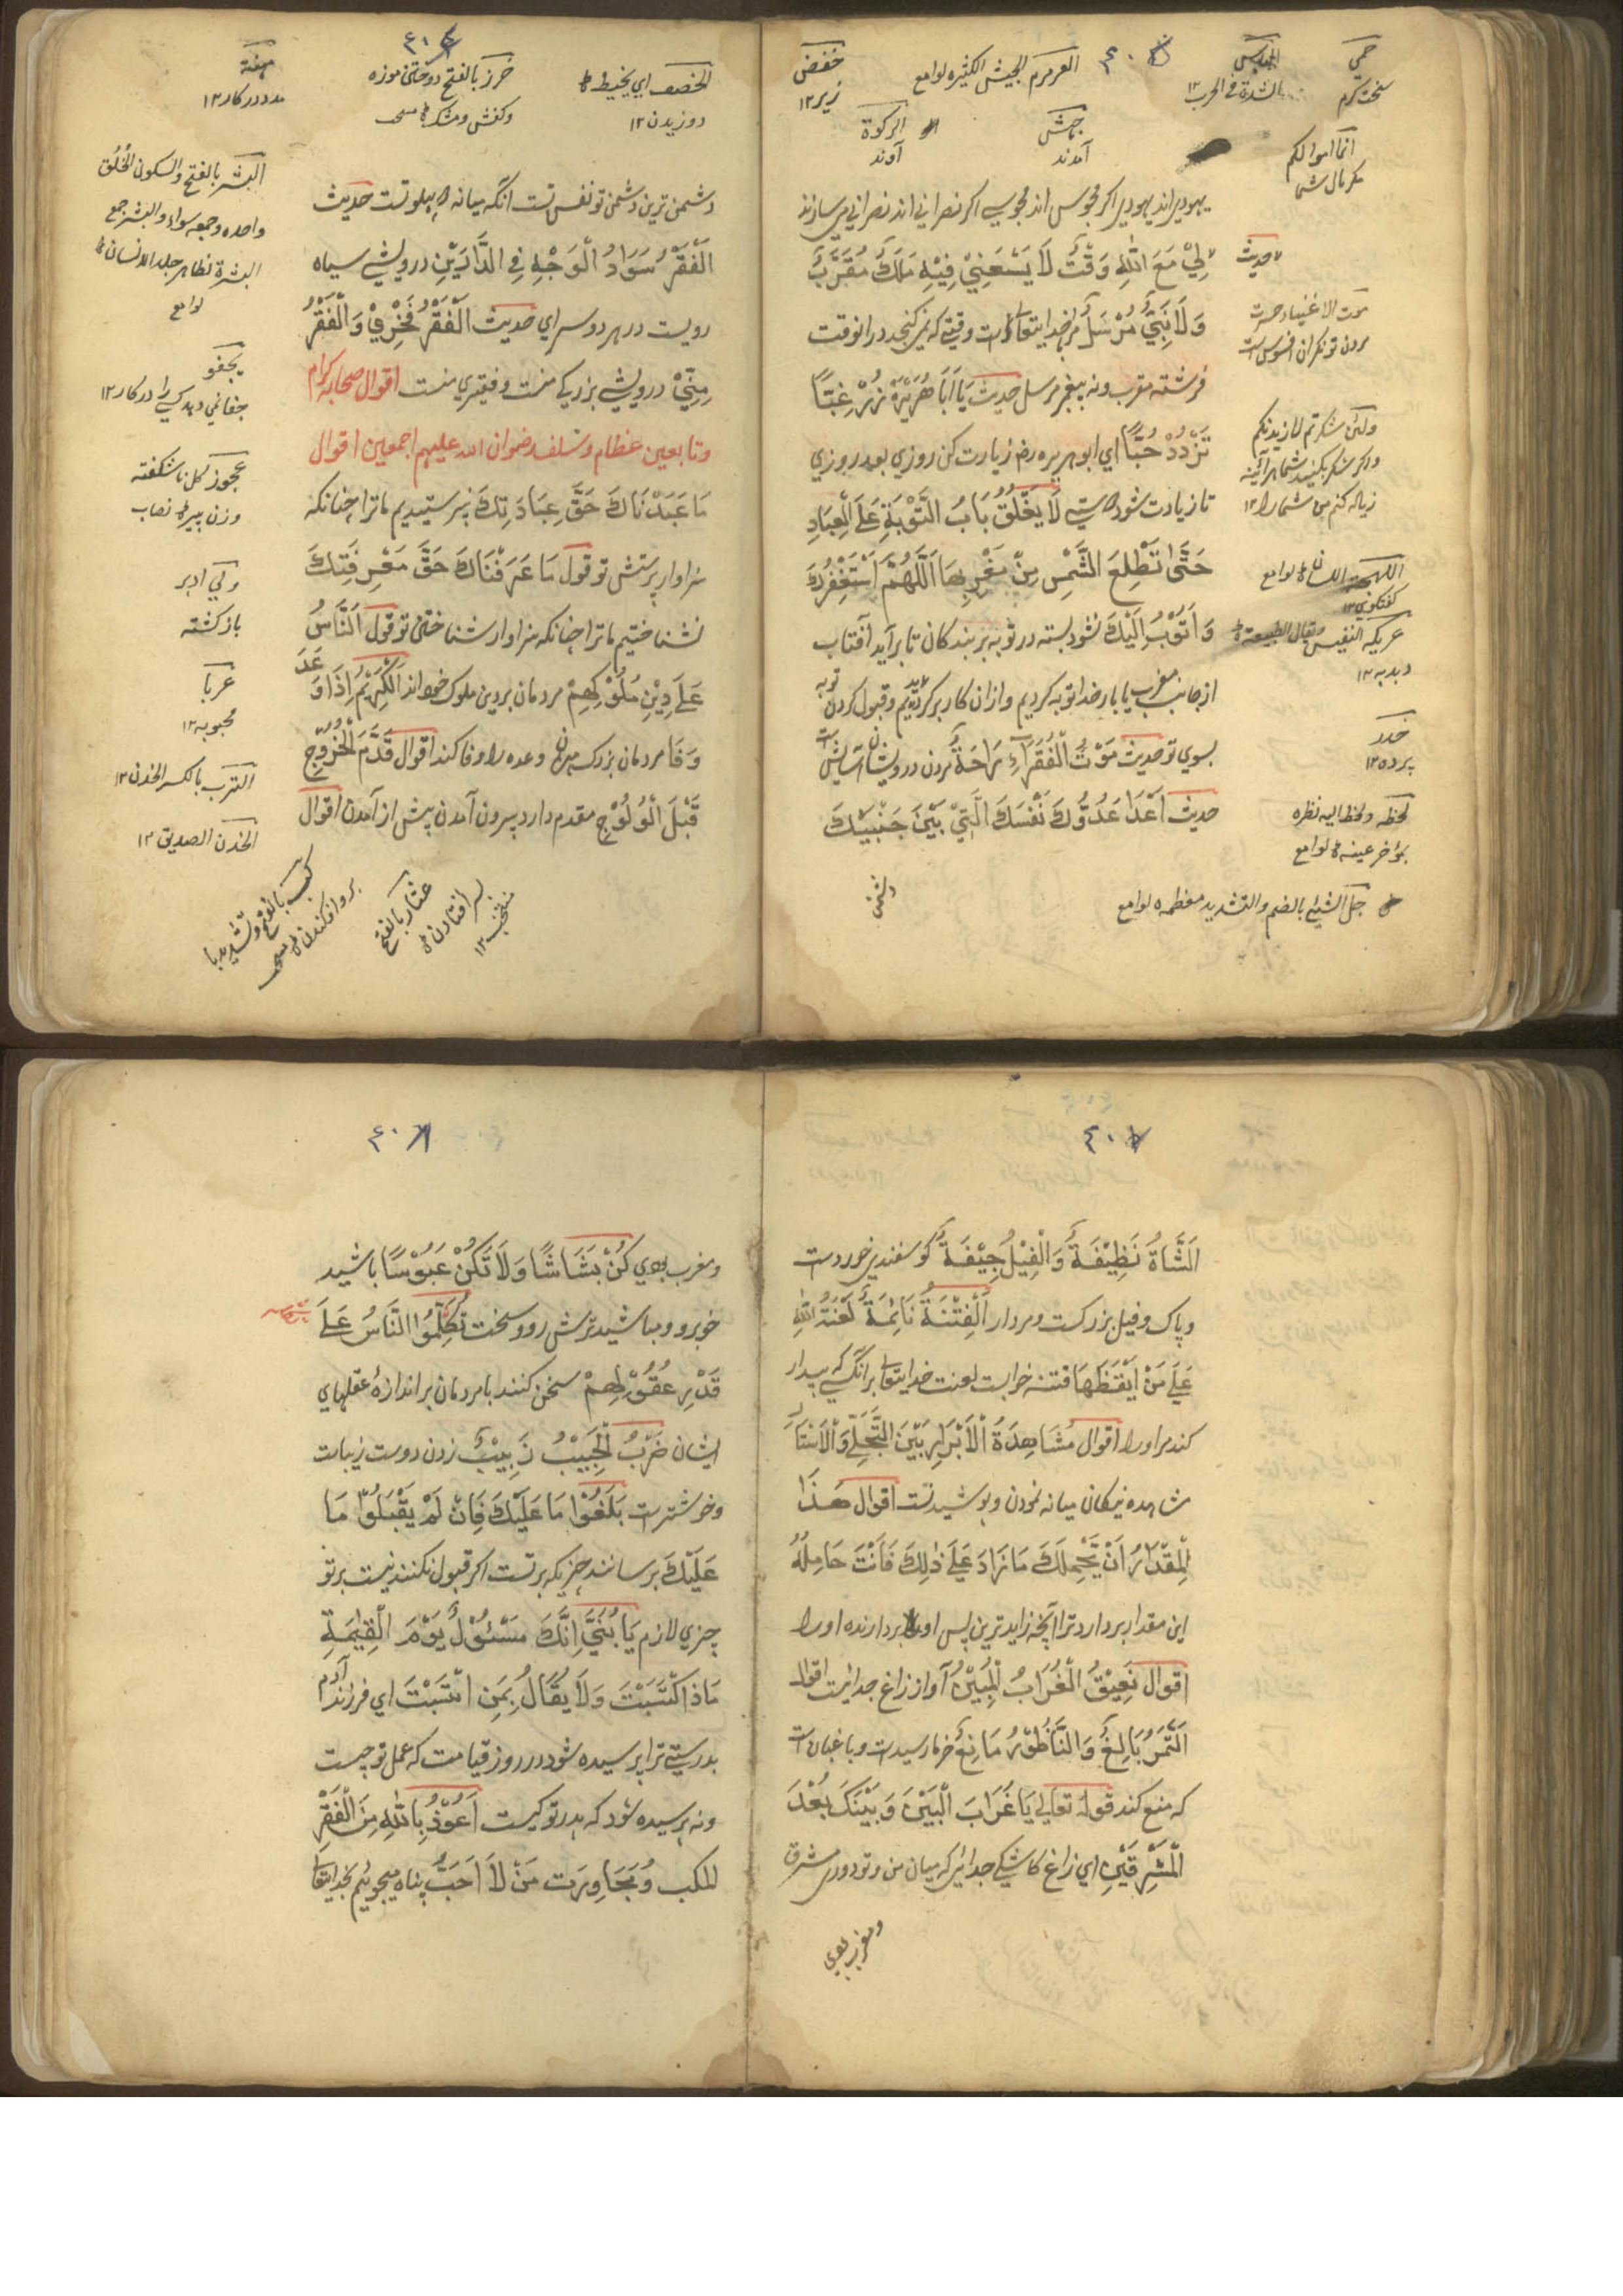 العرمرم الجيش الكثيره لوامع
خفض
زير١٢
جهش
آمدند
سخت كرم
انما اموالكم
يهودي اند يهودي اكر مجوسي اند مجوسي اكر نصراني اند نصراني مي سازند
حديث
لِيْ مَعَ اللهِ وَقْتٌ لَا يَسْعَنِيْ فِيْهِ مَلَكٌ مُقَرَّبٌ
وَلَا نَبِيٌّ مُرْسَلٌ مر خدايتعالى است وقتي كه نمي كنجد در انوقت
فرشته مقرب ونه پيغمبر مرسل حديث يَا اَبَا هُرَيْرَةَ زُرْ غِبًّا
تَزْدُدْ حُبًّا اي ابو هريره رض زيارت كن روزي بعد روزي
تا زيادت شود دوستي لَا يَغْلُقُ بَابُ التَّوْبَةِ عَلَى الْعِبَادِ
حَتّٰى تَطْلِعَ الشَّمْسِ مِنْ مَغْرِبِهَا اَللّٰهُمَّ اَسْتَغْفِرُكَ
وَاَتُوْبُ اِلَيْكَ نشود بسته در توبه بر بندكان تا برآيد آفتاب
از جانب مغرب يا بار خدا توبه كرديم و از ان كار بر كرديديم وقبول كردن توبه
بسوي تو حديث مَوْتُ الْفُقَرَاءِ رَاحَةٌ مردن درويشان آسايش است
حديث اَعْدَا عَدُوُّكَ نَفْسَكَ الَّتِيْ بَيْنَ جَنْبَيْكَ
دشمن
موت الاغنياء حسرت
مردن تونكران افسوس است
ولئن شكرتم لازيدنكم
واكر شكر بكنيد شما هر آئينه
زياده كنم من شما را ١٢
خدر
پرده ١٢
لحظه ولحظ اليه نظره
بمؤخر عينه لوامع
جل الشيئ بالضم والتشديد معظمه لوامع
الخصف اي يخيط
دوزيدن ١٢
خرز بالفتح دوختن موزه
مدد در كار ١٢
دشمن ترين دشمن تو نفس تست آنكه ميانه دو پهلو تست حديث
اَلْفَقْرُ سَوَادُ الْوَجْهِ فِي الدَّارَيْنِ درويشي سياه
رويست در هر دو سراي حديث اَلْفَقْرُ فَخْرِيْ وَالْفَقْرُ
مِنِّيْ درويشي بزركي منست وفقيري منست اقوال صحابه كرام
وتابعين عظام وسلف رضوان الله عليهم اجمعين اقوال
مَا عَبَدْنَاكَ حَقَّ عِبَادَتِكَ نپرستيديم ما ترا چنانكه
سزاوار پرستش تو قول مَا عَرَفْنَاكَ حَقَّ مَعْرِفَتِكَ
نشناختيم ما ترا چنانكه سزاوار شناختن تو قول اَلنَّاسُ
عَلَى دِيْنِ مُلُوْكِهِمْ مردمان بر دين ملوك خود اند اَلْكَرِيْمُ اِذَا وَعَدَ
وَفَا مردمان بزرك چون وعده را وفا كند اقوال قَدَّمَ الْخُرُوْجِ
قَبْلَ الْوُلُوْجِ مقدم دارد بيرون آمدن پيش از آمدن اقوال
البشر بالفتح والسكون الخلق
واحده وجمعه سواء والبشر جمع
البشرة ظاهر جلد الانسان
لوامع
يجفو
عجوز كل نا شكفته
وزن پيره نصاب
ولي ادبر
باز كشته
عربا
محبوبه ١٢
الترب بالكسر الخدن ١٢
الخدن الصديق ١٢
كب بالفتح وتشديد با
بر رو افكندن
عثار بالفتح
بسر افتادن
منتخب ١٢
اَلشَّاةُ نَظِيْفَةٌ وَالْفِيْلُ جِيْفَةٌ كوسفندي خوردست
و پاك و فيل بزركست و مردار اَلْفِتْنَةُ نَائِمَةٌ لَعْنَةُ اللهِ
عَلَى مَنْ اَيْقَظَهَا فتنه خوابست لعنت خدايتعالى بر آنكسي كه بيدار
كند مر او را اقوال مُشَاهِدَةُ الْاَبْرَارِ بَيْنَ التَّجَلِّيْ وَالْاَسْتَارِ
مشاهده نيكان ميانه نمودن و پوشيدنست اقوال هٰذَا
الْمِقْدَارُ اَنْ يَحْمِلَكَ مَا زَادَ عَلَى ذٰلِكَ فَاَنْتَ حَامِلُهُ
اين مقدار بردارد ترا آنچه زايد ترين پس او بردارنده او را
اقوال نَعِيْقُ الْغُرَابُ الْمُبِيْنُ آواز زاغ جدائست اقوال
اَلتَّمَرُ بَالِغٌ وَالنَّاطُوْرُ مَانِعٌ خرما رسيدست و باغبان است
كه منع كند قوله تعالى يَا غُرَابَ الْبَيْنِ وَبَيْنَكَ بُعْدَ
الْمَشْرِقَيْنِ اي زاغ كاشكي جدائي كه ميان من وتو دوري مشرق
ومغرب بودي
ومغرب بودي كُنْ بَشَاشًا وَلَا تَكُنْ عَبُوْسًا باشيد
خوبرو و مباشيد ترش رو و سخت تُكَلِّمُوا النَّاسُ عَلَى
قَدْرِ عُقُوْلِهِمْ سخن كنند با مردمان بر اندازهٔ عقلهاي
ايشان ضَرْبُ الْحَبِيْبُ زَبِيْبٌ زدن دوست زيبات
وخوشترست بَلَّغُوْا مَا عَلَيْكَ فَاِنْ لَمْ يَقْبَلُوْا مَا
عَلَيْكَ برسانند چيزيكه بر تست اكر قبول نكنند نيست بر تو
چيزي لازم يَا بُنَيَّ اِنَّكَ مَسْئُوْلٌ يَوْمَ الْقِيٰمَةِ
مَاذَا اكْتَسَبْتَ وَلَا يُقَالُ بِمَنِ انْتَسَبْتَ اي فرزند آدم
بدرستي ترا پرسيده شود در روز قيامت كه عمل تو چيست
ونه پرسيده شود كه پدر تو كيست اَعُوْذُ بِاللهِ مِنَ الْفَقْرِ
المكب وَمُجَاوِرَت مَنْ لَا اَحَبَّ پناه ميجوئيم بخدايتعالى